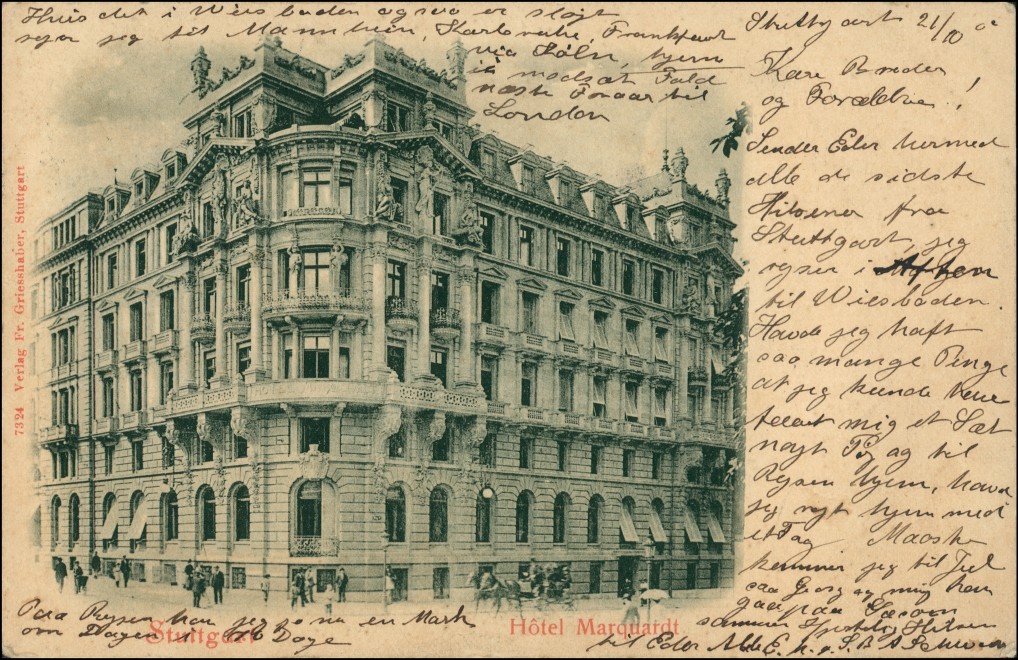 Stuttgart 21/10
Kære Brødre
og Forældre!
Sender Eder hermed
alle de sidste
Hilsener fra
Stuttgart, jeg
rejser i Aften
til Wiesbaden.
Havde jeg haft
saa mange Penge
at jeg kunde have
mig et Sæt
nyt Tøj og til
Rejsen hjem, havde
jeg rejst hjem med
et Tog Maaske
kommer jeg til Jul
saa Georg og mig kan
gaa paa
sammen Hilsen
til Eder Alle
Hvis det i Wiesbaden ogsaa er sløjt
rejser jeg til Mannheim, Karlsruhe, Frankfurt
via Köln, hjem
i modsat Fald
næste Foraar til
London
Paa Rejsen har jeg jo nu en Mark
om Dagen Dage
7324 Verlag Fr. Griesshaber, Stuttgart
Stuttgart
Hôtel Marquardt